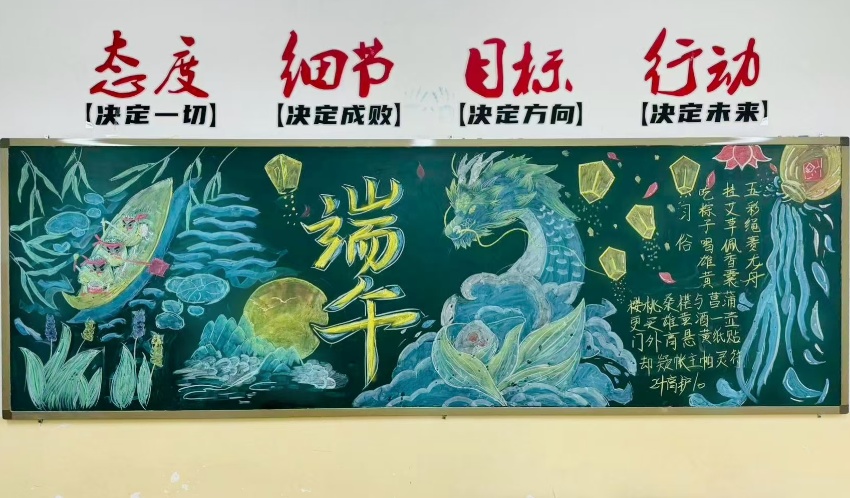 态度
【决定一切】
细节
【决定成败】
目标
【决定方向】
行动
【决定未来】
端午
习俗
五彩绳赛龙舟
挂艾草佩香囊
吃粽子喝雄黄
樱桃桑椹与菖蒲
更买雄黄酒一壶
门外高悬黄纸贴
却疑帐主怕灵符
24高护10